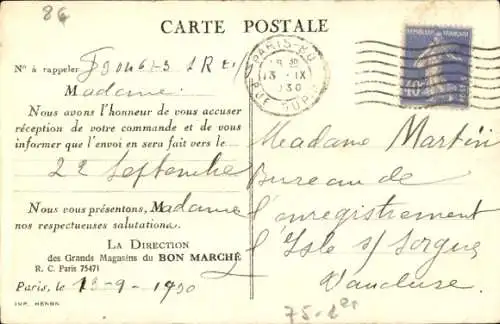 86
CARTE POSTALE
N° à rappeler
Madame
Nous avons l'honneur de vous accuser
réception de votre commande et de vous
informer que l'envoi en sera fait vers le
22 Septembre
Nous vous présentons, Madame
nos respectueuses salutations.
LA DIRECTION
des Grands Magasins du BON MARCHÉ
R. C. Paris 75471
Paris, le 13-9-1930
IMP. HENON
PARIS
13 IX
30
REPUBLIQUE FRANÇAISE
40
Madame Martin
Bureau de
l'enregistrement
l'Isle s/ Sorgue
Vaucluse